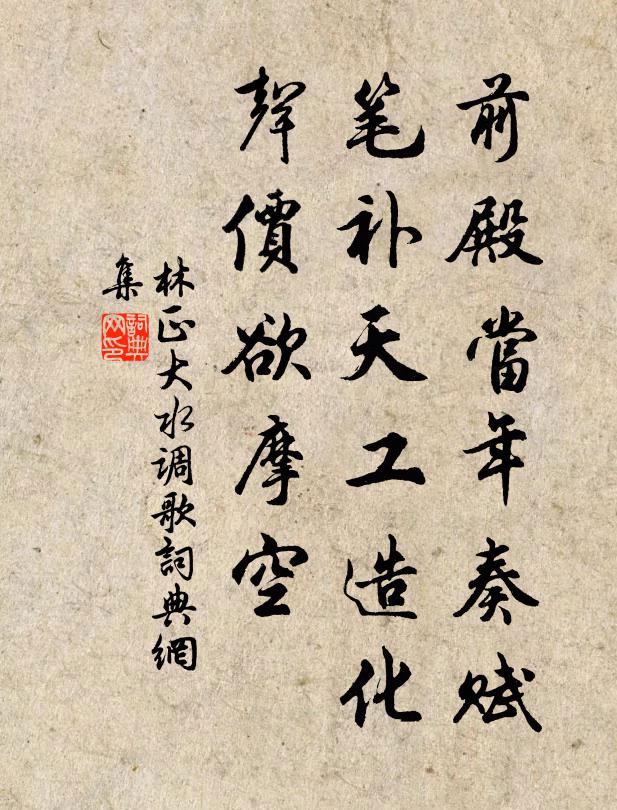 前殿當年奏賦
笔补天工造化
聲價欲摩空
林正大水调歌詞典網
集
詞典網印